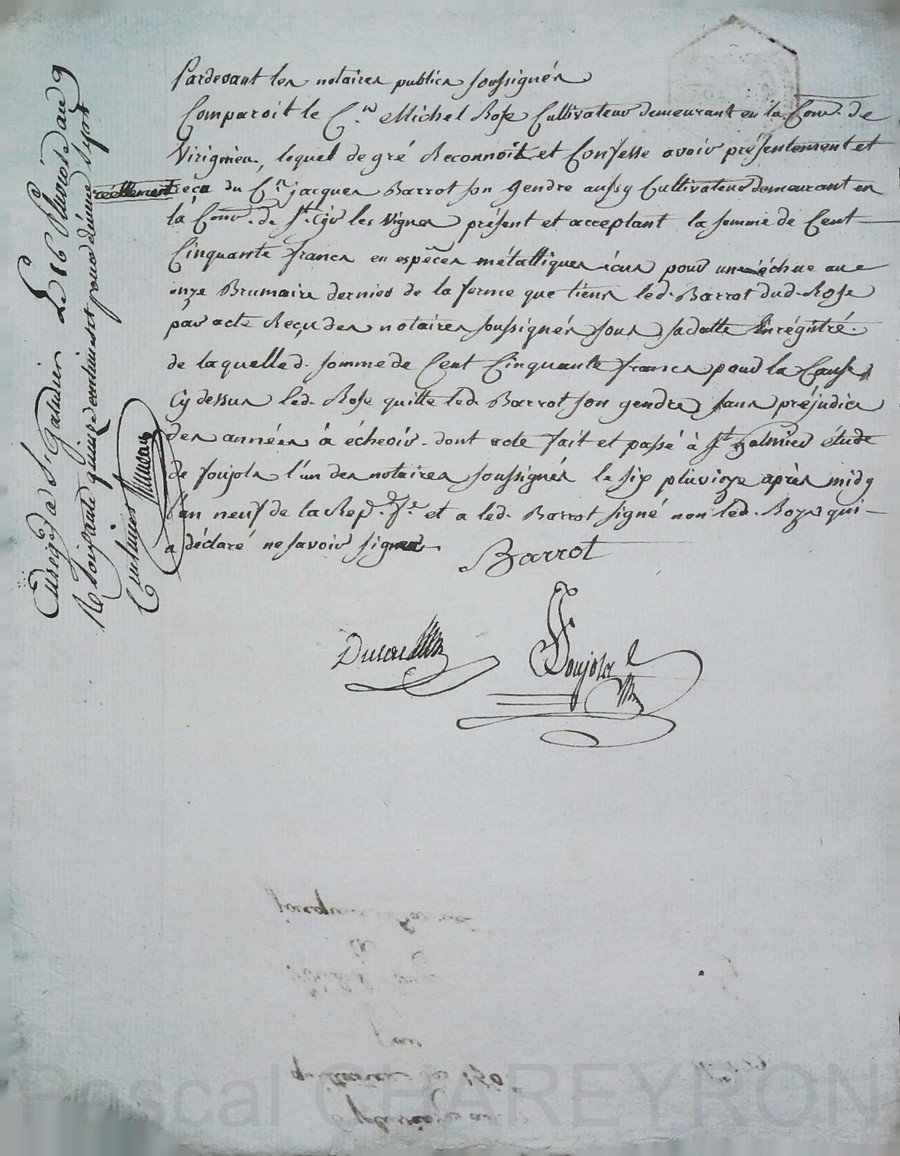 Pardevant les notaires publics soussignés
Comparoit le C.en Michel Rose Cultivateur demeurant en la Com.e de
Virigneu, lequel de gré Reconnoit et Confesse avoir présentement et
réellement reçu du C.en jacques Barrot son gendre aussy Cultivateur demeurant en
la Com.e de St. Cyr les Vignes présent et acceptant la somme de Cent
Cinquante francs en espèces métalliques pour échue au
onze Brumaire dernier de la ferme que tiens led. Barrot dud. Rose
par acte Reçu des notaires soussignés sous sa datte Enrégistré.
de laquelle d. somme de Cent Cinquante francs pour la Cause
Cy dessus led. Rose quitte led. Barrot son gendre sans préjudice
des années à échoir. dont acte fait et passé à St. galmier étude
de foujols l'un des notaires soussignés le six pluviose après midy
l'an neuf de la Rep. f.se et a led. Barrot signé non led. Roze qui
a déclaré ne savoir signer
Barrot
foujols
Enrég. à St. Galmier Le 16 pluviose an 9
R. soixante quinze centimes et pour dixme sept
Pascal CHAREYRON